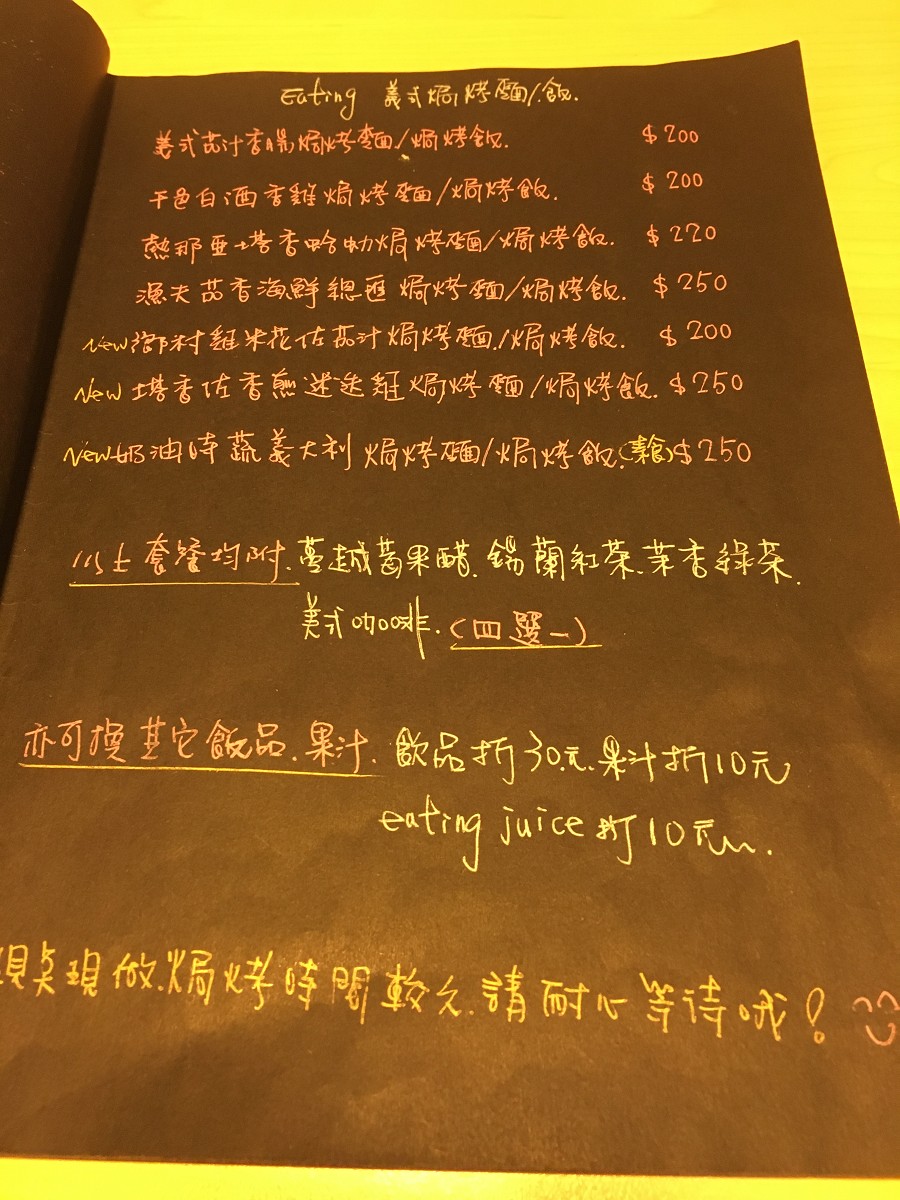 Eating 義式焗烤麵/飯.
義式茄汁香腸焗烤麵/焗烤飯. $200
干邑白酒香雞焗烤麵/焗烤飯. $200
熱那亞塔香蛤蜊焗烤麵/焗烤飯. $220
漁夫茄香海鮮總匯焗烤麵/焗烤飯. $250
New鄉村雞米花佐茄汁焗烤麵/焗烤飯. $200
New塔香佐香煎迷迭雞焗烤麵/焗烤飯. $250
New奶油時蔬義大利焗烤麵/焗烤飯.(素食)$250
以上套餐均附.蔓越莓果醋.錫蘭紅茶.茉香綠茶.
美式咖啡.(四選一)
亦可換其它飲品.果汁.飲品折30元.果汁折10元
eating juice折10元~.
現點現做.焗烤時間較久.請耐心等待哦!